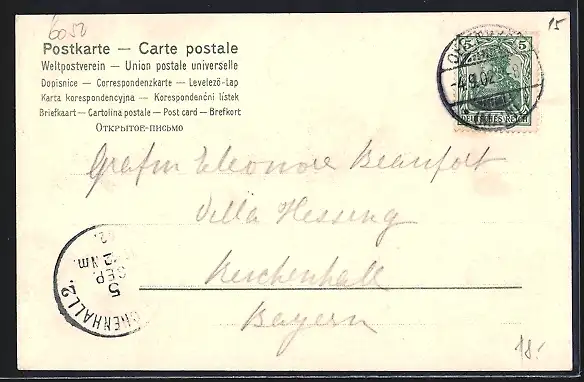 6052
15
Postkarte — Carte postale
Weltpostverein — Union postale universelle
Dopisnice — Correspondenzkarte — Levelező-Lap
Karta korespondencyjna — Korespondenční lístek
Briefkaart — Cartolina postale — Post card — Brefkort
Открытое-письмо
5 5
-4.9.02.
DEUTSCHES REICH
Gräfin Eleonore Beaufort
Villa Hessing
Reichenhall
Bayern
5
SEP.
Nm.
02.
CHENHALL 2.
18.-